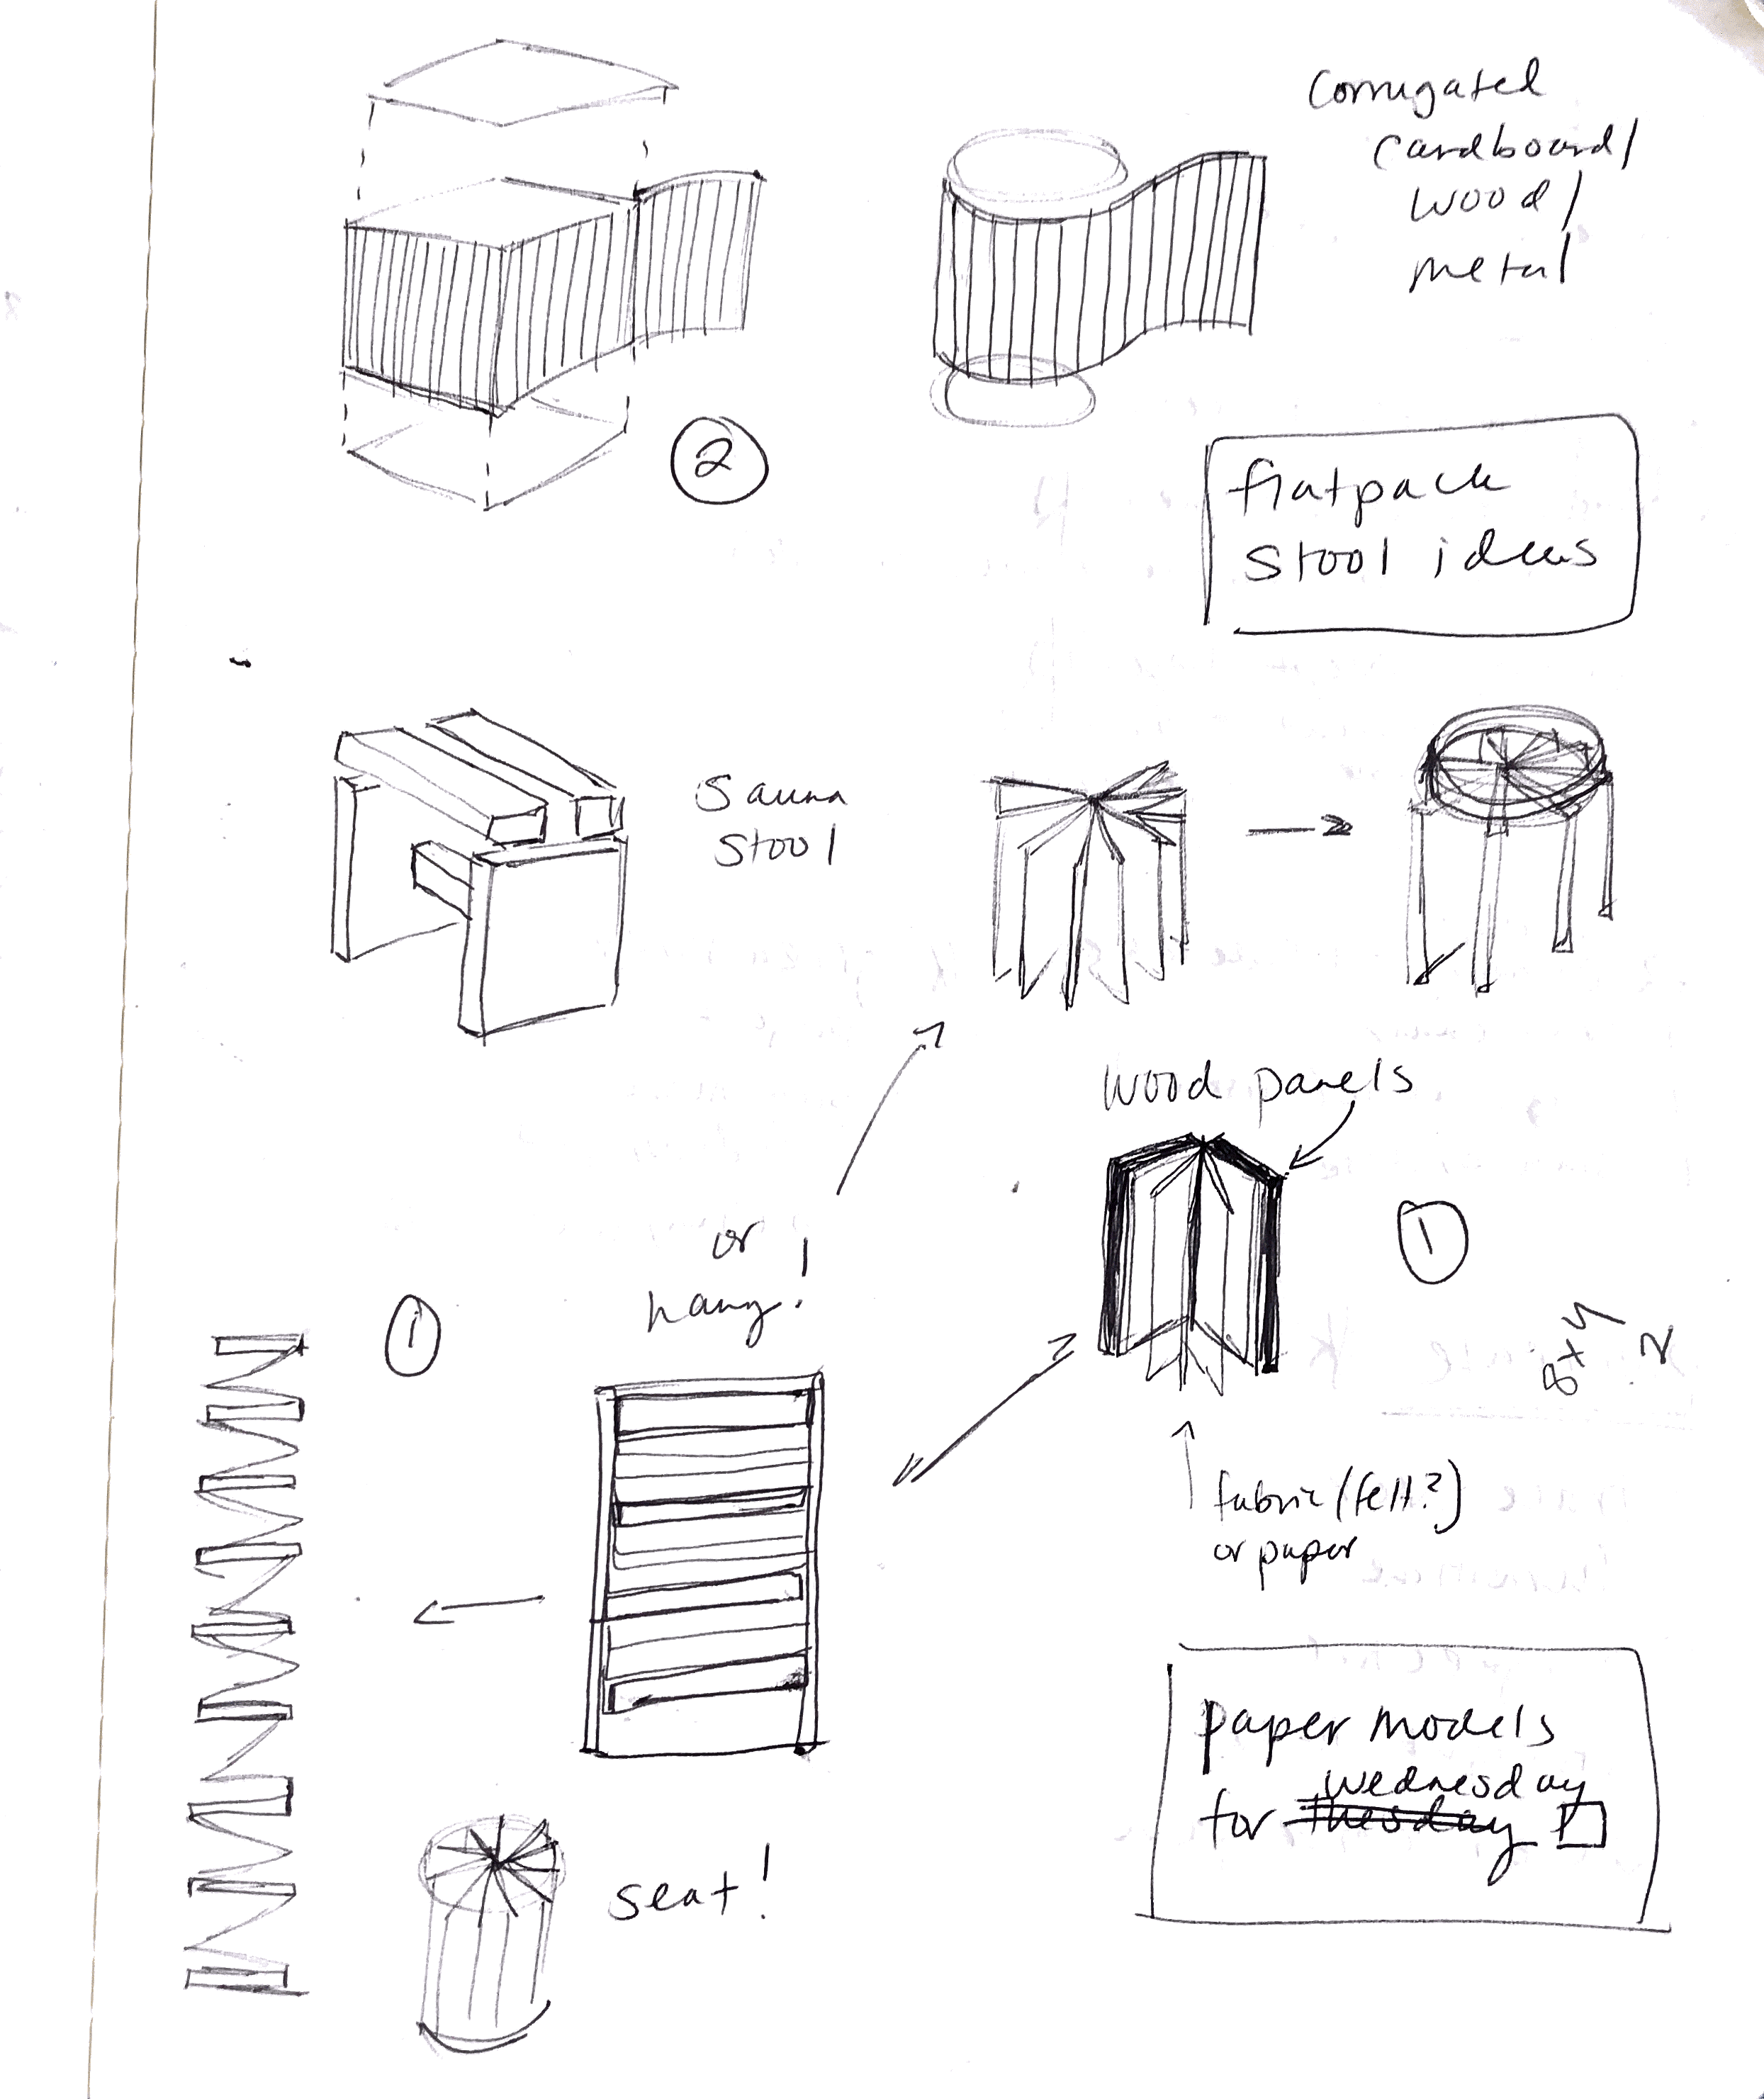 Corrugated
cardboard/
wood/
metal
2
flatpack
stool ideas
Sauna
stool
wood panels
1
or
hang!
1
8x4
2
fabric (felt?)
or paper
paper models
wednesday
for tuesday
seat!